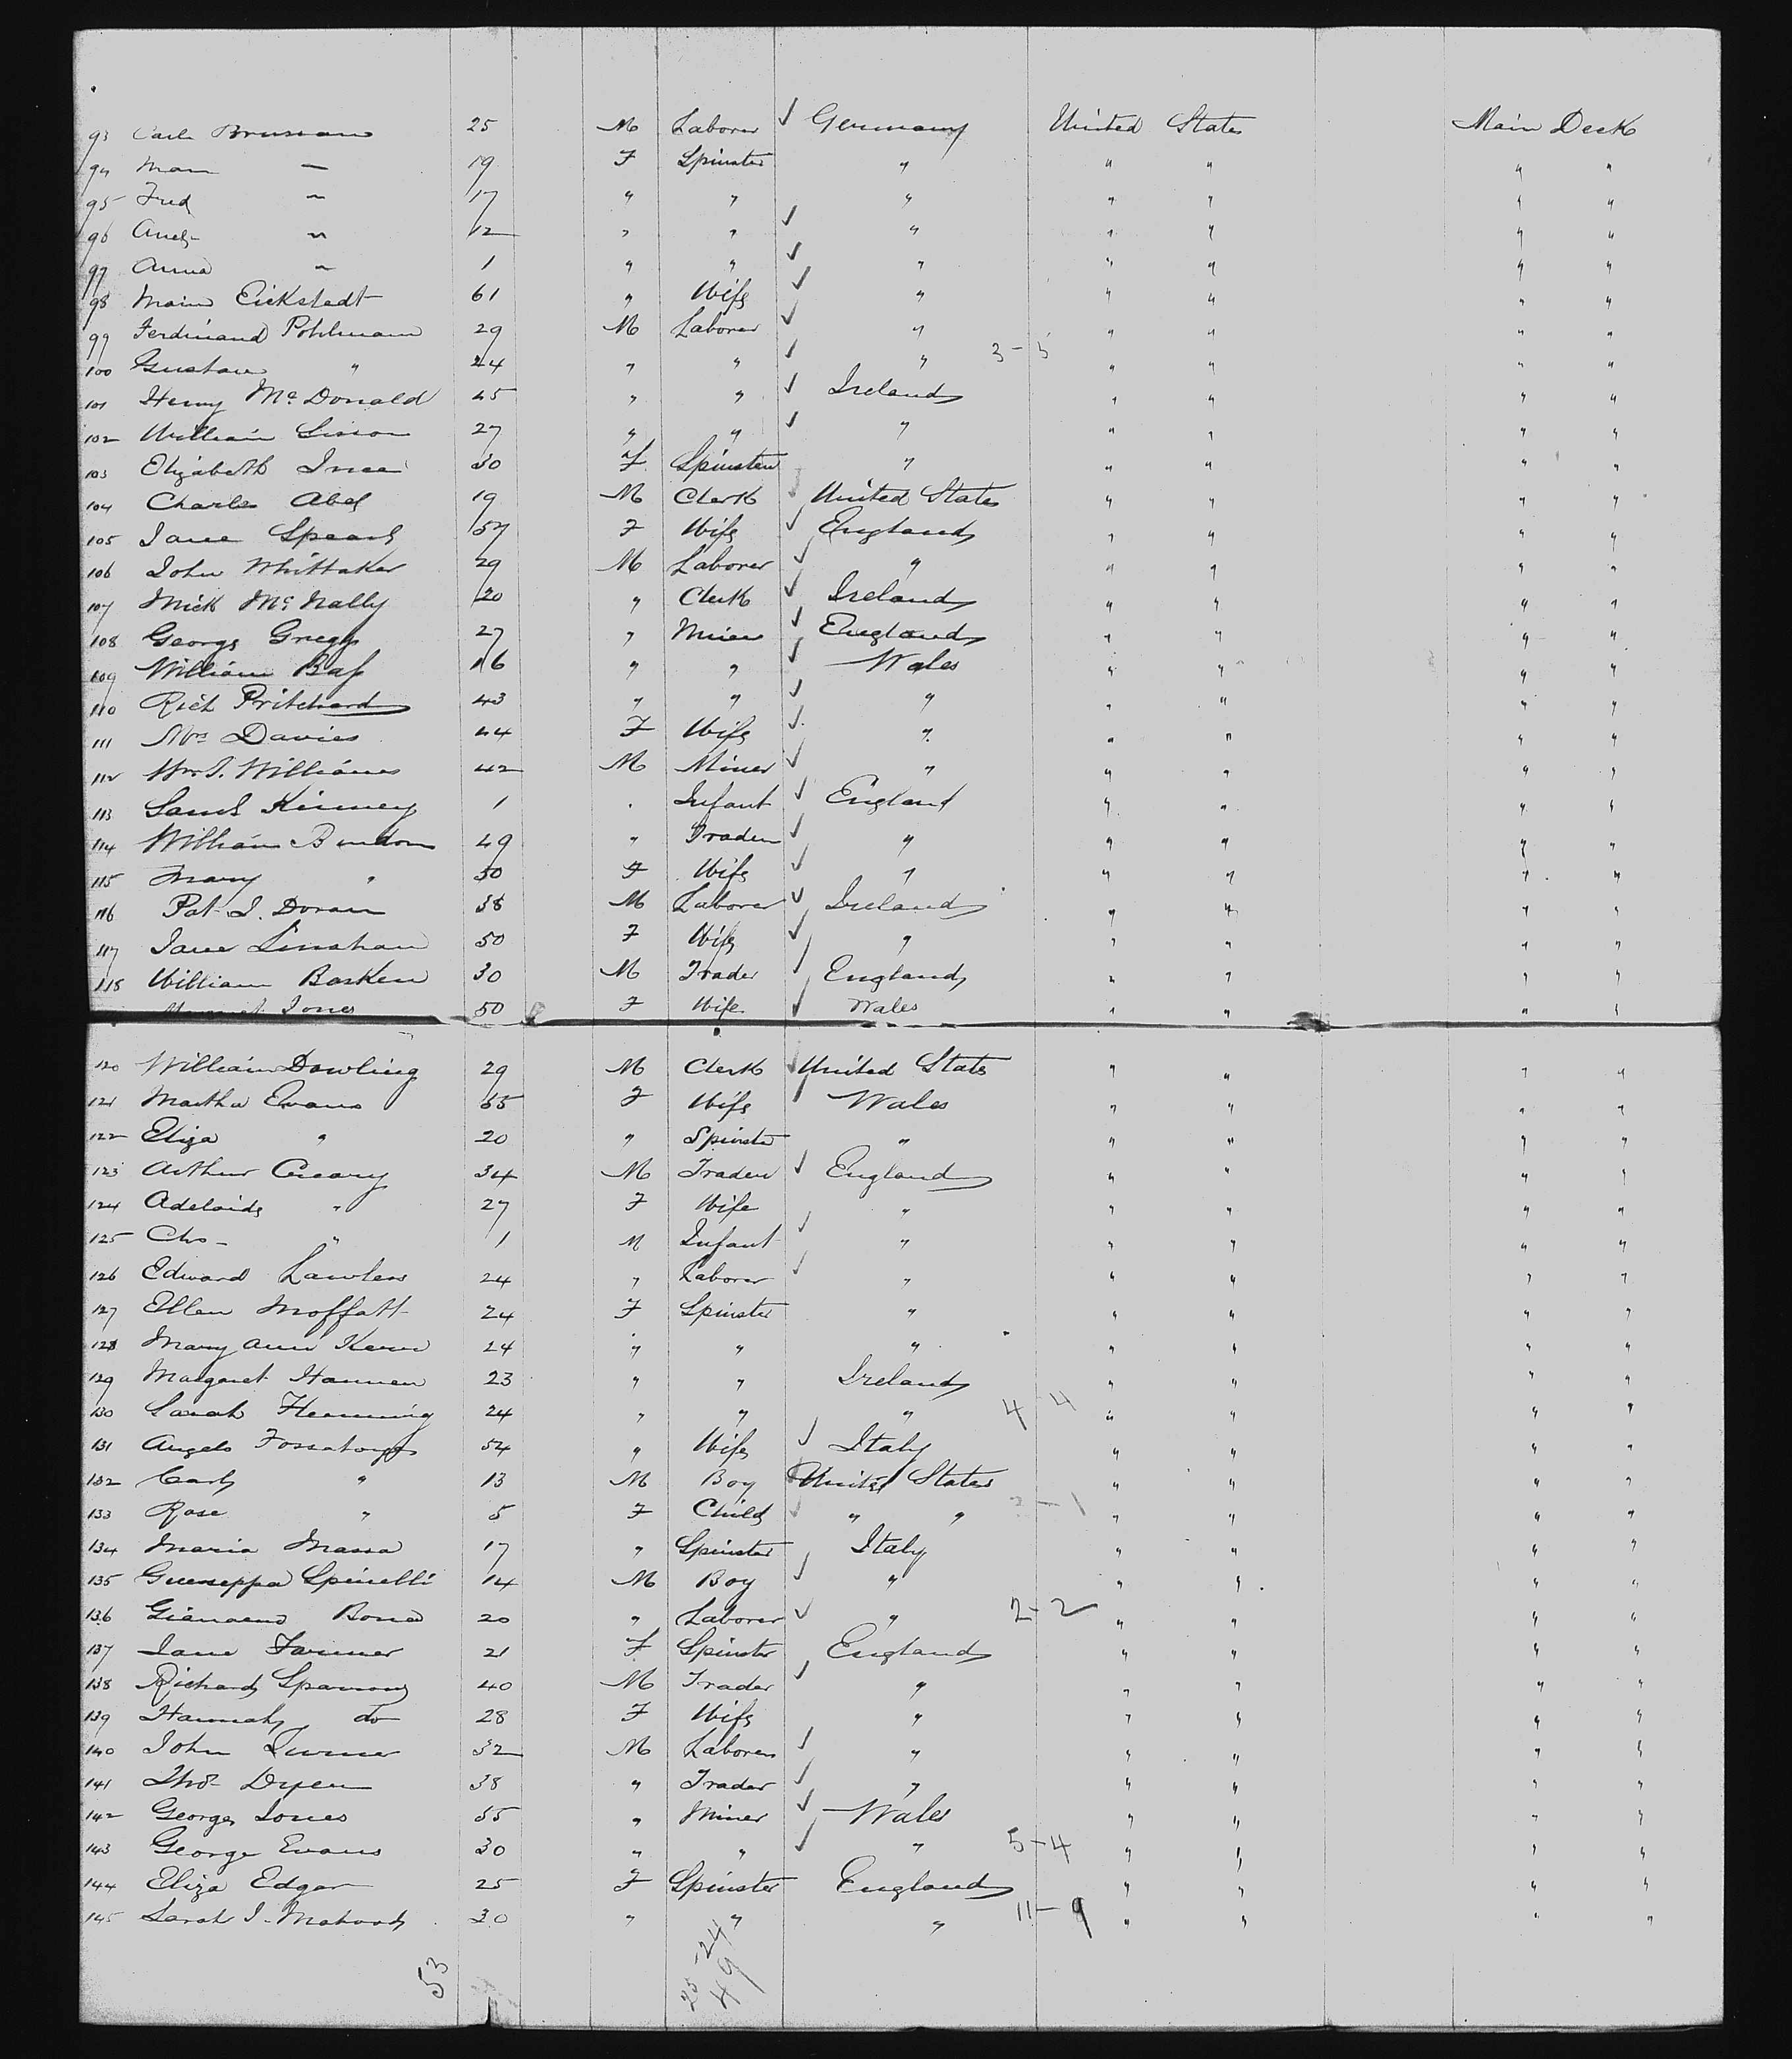 93 Carl Brusmann 25 M Laborer ✓ Germany United States Main Deck
94 — 19 F Spinster " " " " "
95 Fred ~ 17 " " " " " " "
96 ~ 12 " " ✓ " " " " "
97 Anna ~ 1 " " ✓ " " " " "
98 Eickstedt 61 " Wife ✓ " " " " "
99 Ferdinand Pohlmann 29 M Laborer ✓ " " " " "
100 Gustave " 24 " " ✓ " 3-5 " " " "
101 Henry McDonald 45 " " ✓ Ireland " " " "
102 William 27 " " ✓ " " " " "
103 Elizabeth 30 F Spinster " " " " "
104 Charles Abel 19 M Clerk ✓ United States " " " "
105 Jane 57 F Wife ✓ England " " " "
106 John Whittaker 29 M Laborer ✓ " " " " "
107 Mick McNally 20 " Clerk ✓ Ireland " " " "
108 George Gregg 27 " Miner ✓ England " " " "
109 William 16 " " ✓ Wales " " " "
110 Rich Pritchard 43 " " ✓ " " " " "
111 Mrs Davies 44 F Wife ✓ " " " " "
112 Wm J. Williams 42 M Miner ✓ " " " " "
113 Saml Kinney 1 . Infant ✓ England " " " "
114 William 49 " Trader ✓ " " " " "
115 Mary " 50 F Wife ✓ " " " " "
116 Pat J. Doran 38 M Laborer ✓ Ireland " " " "
117 Jane Linahan 50 F Wife ✓ " " " " "
118 William Barker 30 M Trader ✓ England " " " "
Jones 50 F Wife ✓ Wales " " " "
120 William Dowling 29 M Clerk ✓ United States " " " "
121 Martha Evans 55 F Wife Wales " " " "
122 Eliza " 20 " Spinster " " " " "
123 Arthur Creary 34 M Trader ✓ England " " " "
124 Adelaide " 27 F Wife " " " " "
125 Chs - " 1 M Infant ✓ " " " " "
126 Edward Lawless 24 " Laborer ✓ " " " " "
127 Ellen Moffatt 24 F Spinster " " " " "
128 Mary Ann 24 " " " " " " "
129 Margaret Hannen 23 " " Ireland " " " "
130 Sarah Flemming 24 " " " 4-4 " " " "
131 Angelo 54 " Wife ✓ Italy " " " "
132 Carly " 13 M Boy United States " " " "
133 Rose " 5 F Child ✓ " " -1 " " " "
134 Maria Massa 17 " Spinster Italy " " " "
135 Gueseppa Spinelli 14 M Boy ✓ " " " " "
136 Bona 20 " Laborer ✓ " 2-2 " " " "
137 Jane Farmer 21 F Spinster England " " " "
138 Richard 40 M Trader ✓ " " " " "
139 Hannah do 28 F Wife " " " " "
140 John Turner 32 M Laborer ✓ " " " " "
141 Thos Dyer 38 " Trader ✓ " " " " "
142 George Jones 55 " Miner ✓ Wales " " " "
143 George Evans 30 " " ✓ " 5-4 " " " "
144 Eliza Edgar 25 F Spinster England " " " "
145 Sarah J. 30 " " " 11-9 " " " "
53
25-24
49